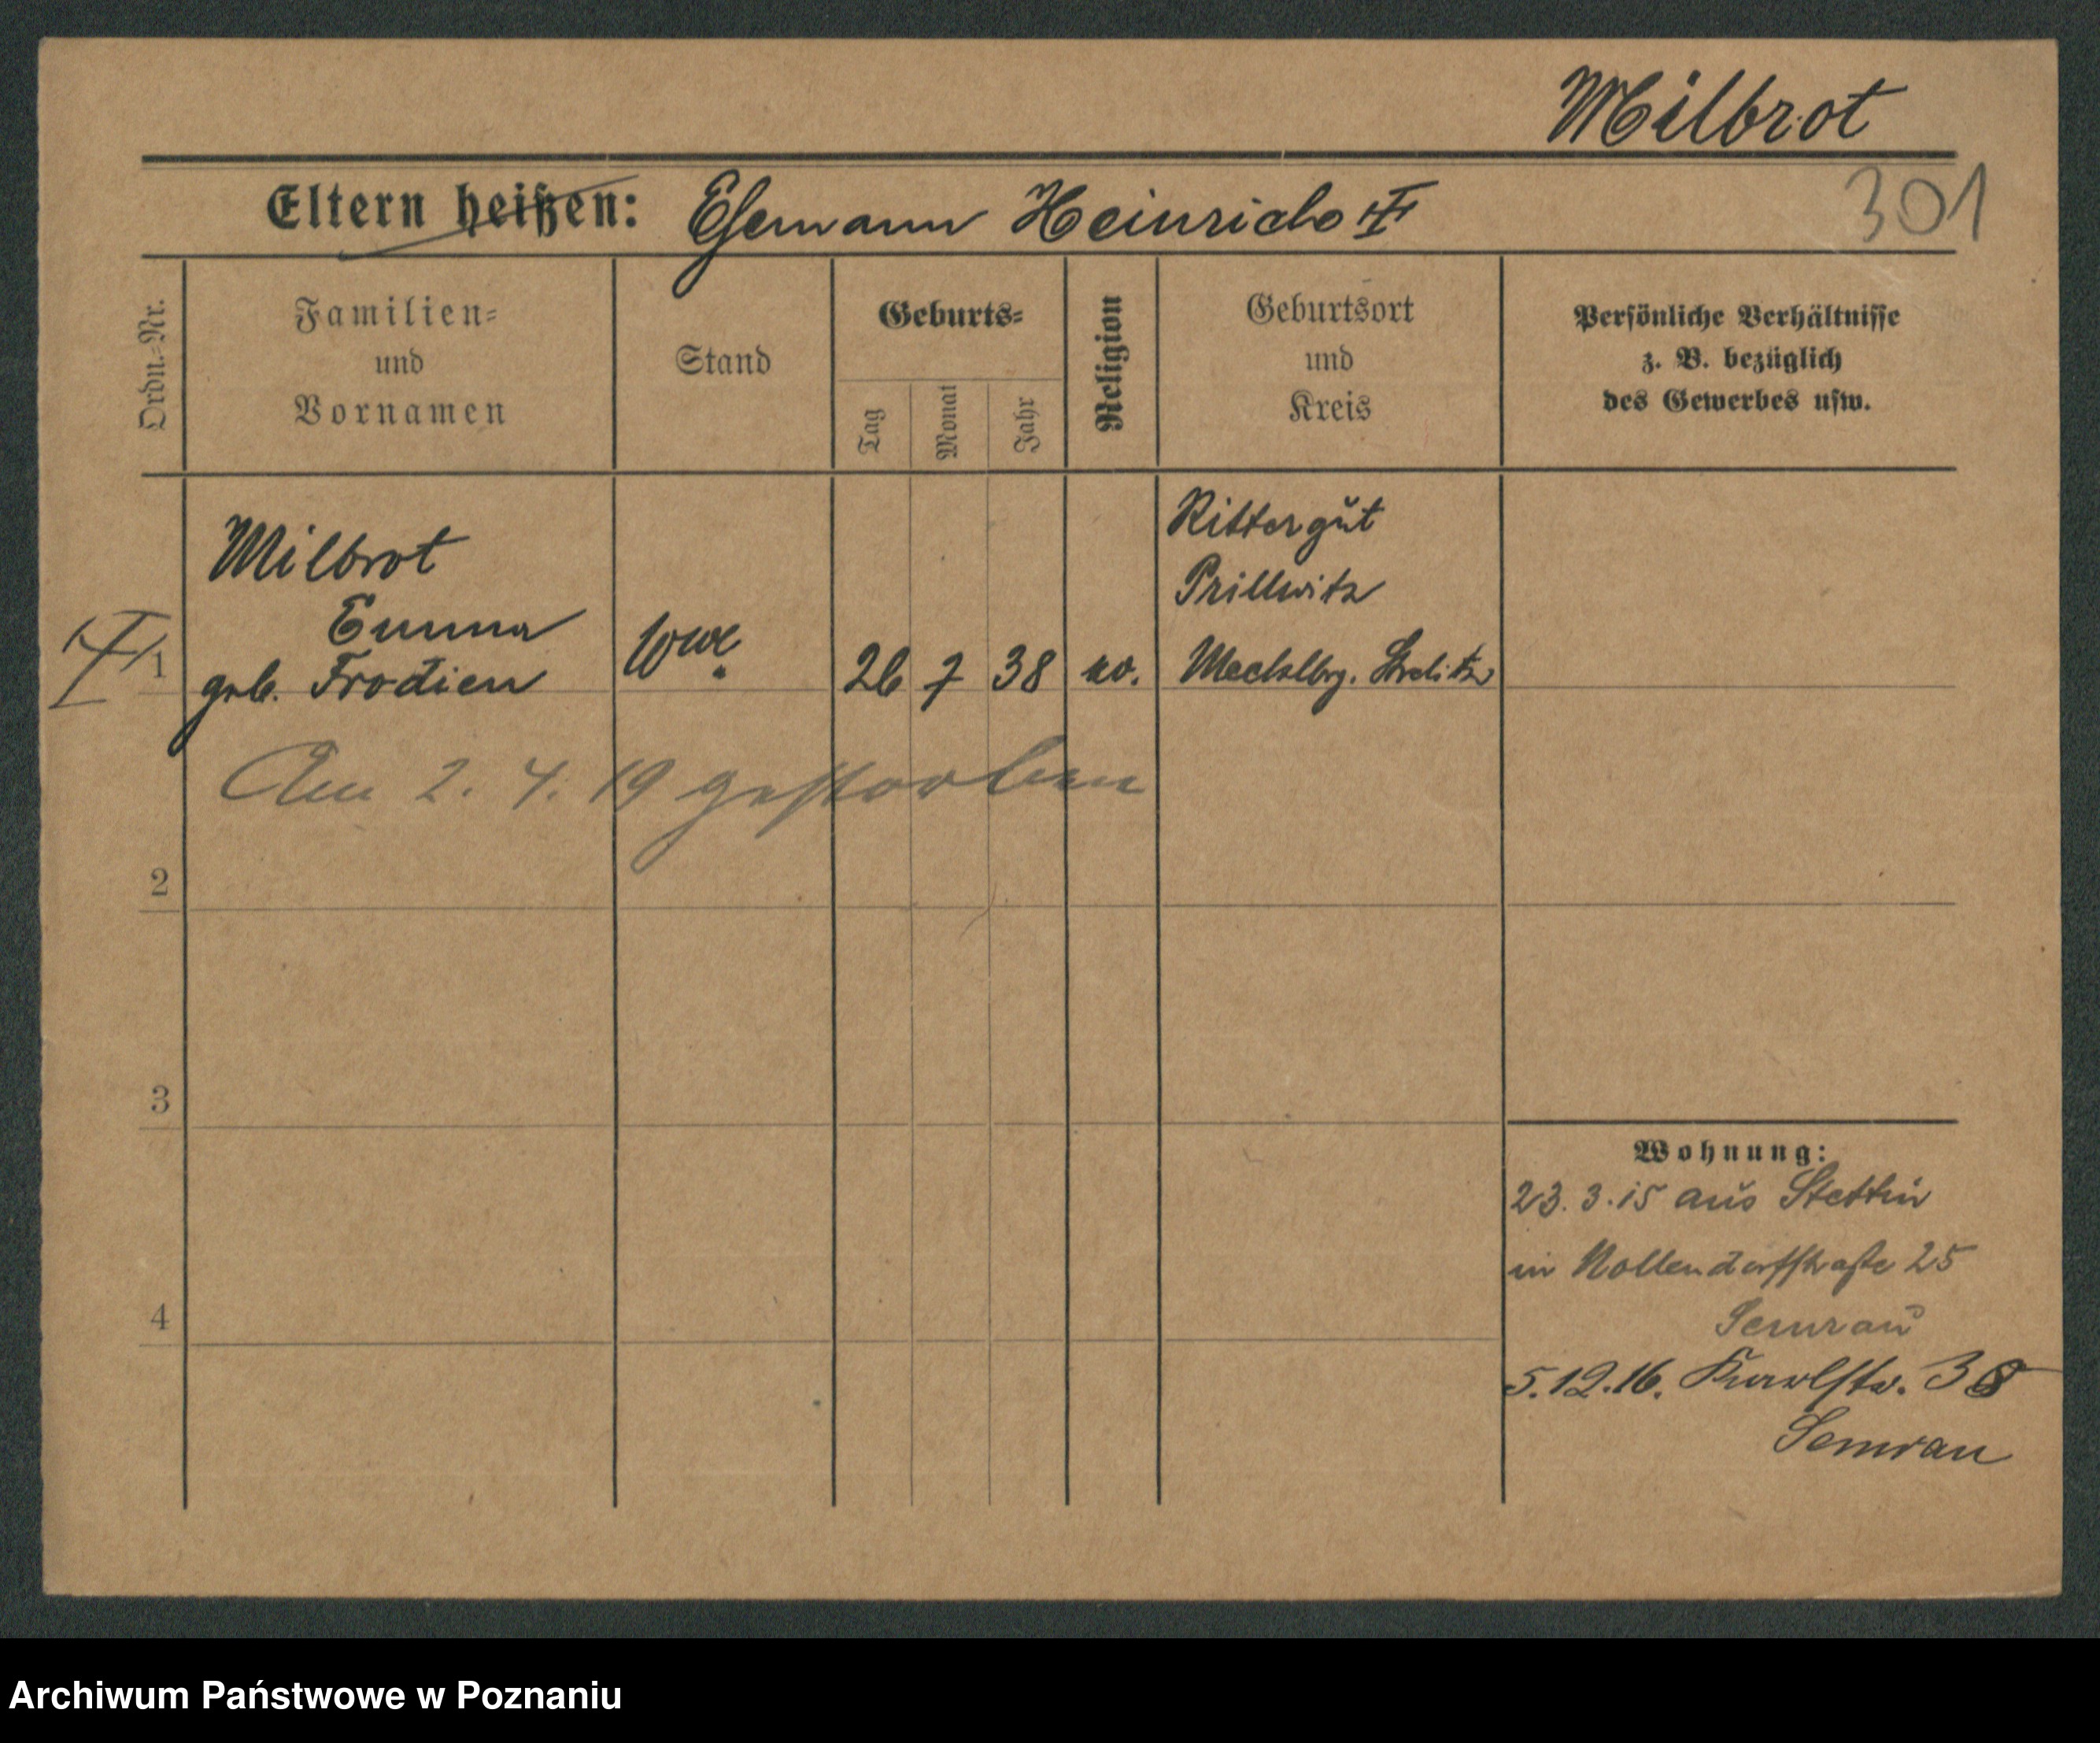 Milbrot
Eltern heißen: Ehemann Heinrich
301
Ordn.-Nr.
Familien-
und
Vornamen
Stand
Geburts-
Tag
Monat
Jahr
Religion
Geburtsort
und
Kreis
Persönliche Verhältnisse
z. B. bezüglich
des Gewerbes usw.
1
Milbrot
Emma
geb. Frodien
Wwe.
26
7
38
ev.
Rittergut
Prillwitz
Mecklbrg. Strelitz
Am 2. 4. 19 gestorben
2
3
4
Wohnung:
23. 3. 15 aus Stettin
in Nollendorfstraße 25
Semrau
5.12.16. 38
Semrau
Archiwum Państwowe w Poznaniu